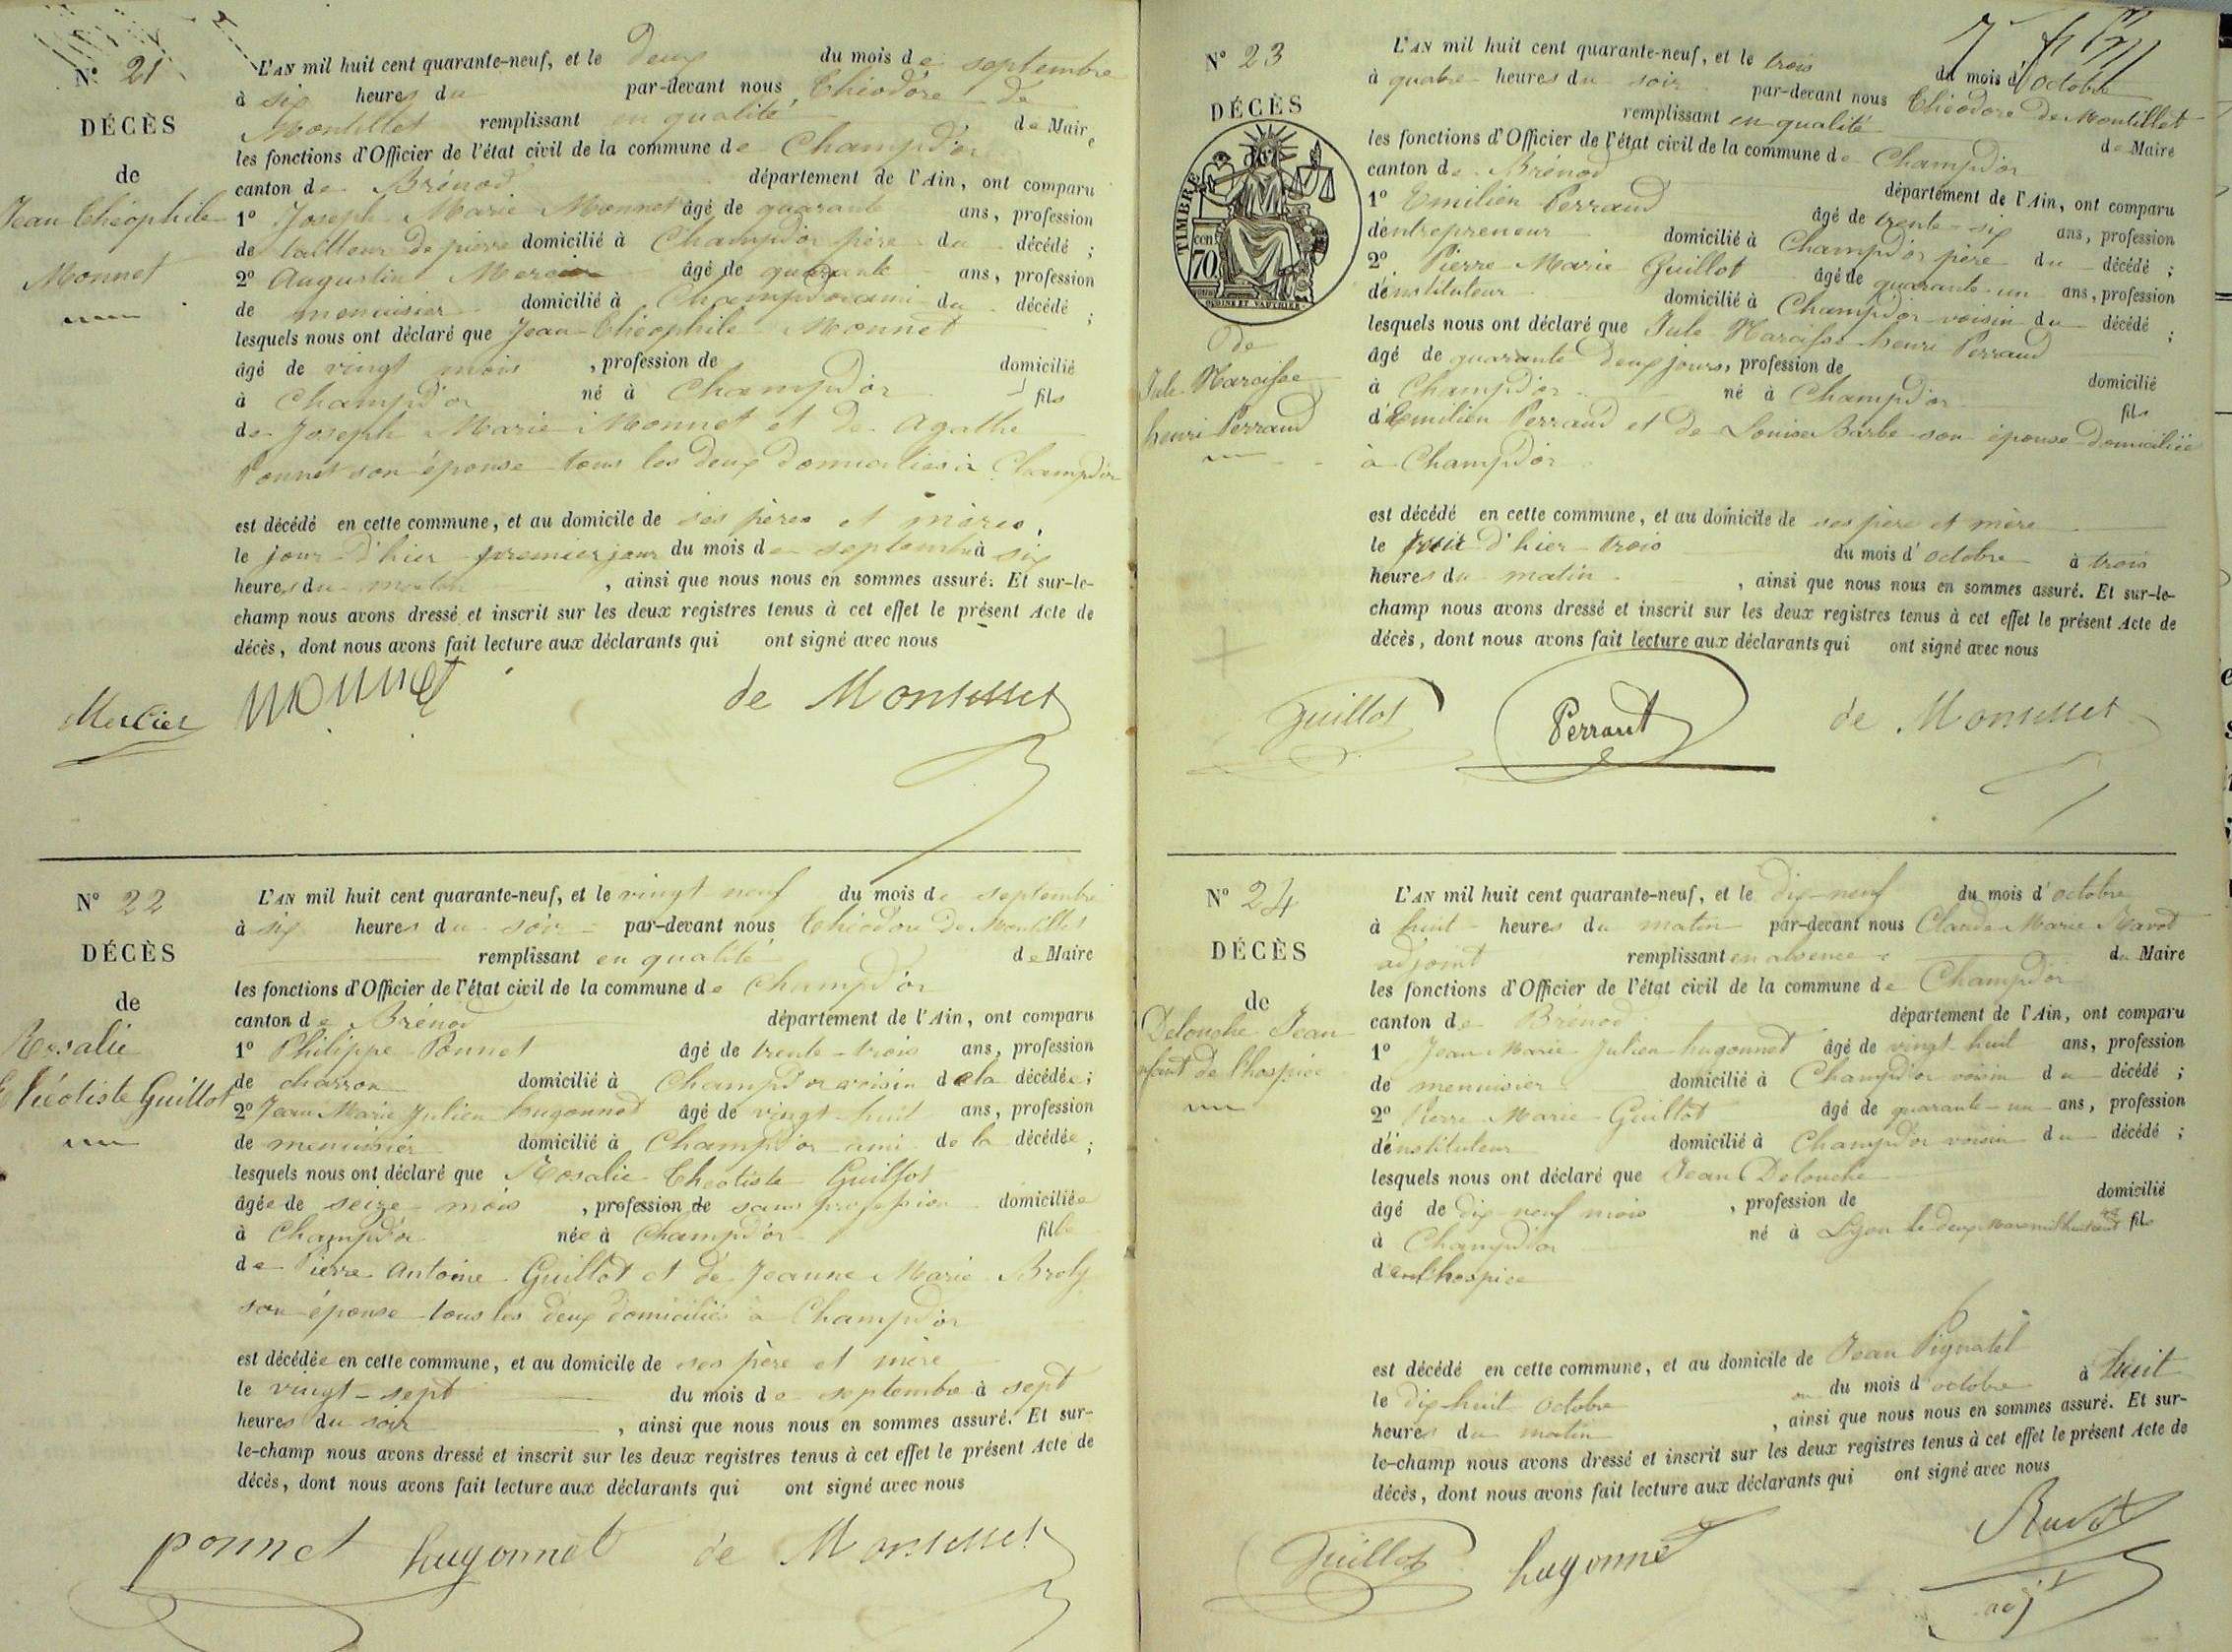 N° 21
DÉCÈS
de
Jean Théophile
Monnet
L'AN mil huit cent quarante-neuf, et le deux du mois de septembre
à six heures du par-devant nous Théodore de
Montillet remplissant en qualité de Maire
les fonctions d'Officier de l'état civil de la commune de Champdor
canton de Brénod département de l'Ain, ont comparu
1° Joseph Marie Monnet âgé de quarante ans, profession
de tailleur de pierre domicilié à Champdor père du décédé ;
2° Augustin Mercier âgé de quarante ans, profession
de menuisier domicilié à Champdor ami du décédé ;
lesquels nous ont déclaré que Jean Théophile Monnet
âgé de vingt mois , profession de domicilié
à Champdor né à Champdor fils
de Joseph Marie Monnet et de Agathe
Ponnet son épouse tous les deux domiciliés à Champdor
est décédé en cette commune, et au domicile de ses pères et mères,
le jour d'hier premier jour du mois de septembre à six
heures du matin , ainsi que nous nous en sommes assuré. Et sur-le-
champ nous avons dressé et inscrit sur les deux registres tenus à cet effet le présent Acte de
décès, dont nous avons fait lecture aux déclarants qui ont signé avec nous
Mercier Monnet de Montillet
N° 22
DÉCÈS
de
Rosalie
Théotiste Guillot
L'AN mil huit cent quarante-neuf, et le vingt neuf du mois de septembre
à six heures du soir par-devant nous Théodore de Montillet
remplissant en qualité de Maire
les fonctions d'Officier de l'état civil de la commune de Champdor
canton de Brénod département de l'Ain, ont comparu
1° Philippe Ponnet âgé de trente-trois ans, profession
de charron domicilié à Champdor voisin de la décédée ;
2° Jean Marie Julien hugonnet âgé de vingt-huit ans, profession
de menuisier domicilié à Champdor ami de la décédée ;
lesquels nous ont déclaré que Rosalie Théotiste Guillot
âgée de seize mois , profession de sans profession domiciliée
à Champdor née à Champdor fille
de Pierre Antoine Guillot et de Jeanne Marie Broly
son épouse tous les deux domiciliés à Champdor
est décédée en cette commune, et au domicile de ses père et mère
le vingt-sept du mois de septembre à sept
heures du soir , ainsi que nous nous en sommes assuré. Et sur-
le-champ nous avons dressé et inscrit sur les deux registres tenus à cet effet le présent Acte de
décès, dont nous avons fait lecture aux déclarants qui ont signé avec nous
ponnet hugonnet de Montillet
N° 23
DÉCÈS
TIMBRE
70 cent
de
Jule Narcisse
henri Perraud
L'AN mil huit cent quarante-neuf, et le trois du mois d'octobre
à quatre heures du soir par-devant nous Théodore de Montillet
remplissant en qualité de Maire
les fonctions d'Officier de l'état civil de la commune de Champdor
canton de Brénod département de l'Ain, ont comparu
1° Emilien Perraud âgé de trente-six ans, profession
d'entrepreneur domicilié à Champdor père du décédé ;
2° Pierre Marie Guillot âgé de quarante-un ans, profession
d'instituteur domicilié à Champdor voisin du décédé ;
lesquels nous ont déclaré que Jule Narcisse henri Perraud
âgé de quarante deux jours, profession de domicilié
à Champdor né à Champdor fils
d'Emilien Perraud et de Louise Barbe son épouse domiciliés
à Champdor
est décédé en cette commune, et au domicile de ses père et mère
le jour d'hier trois du mois d'octobre à trois
heures du matin , ainsi que nous nous en sommes assuré. Et sur-le-
champ nous avons dressé et inscrit sur les deux registres tenus à cet effet le présent Acte de
décès, dont nous avons fait lecture aux déclarants qui ont signé avec nous
Guillot Perraut de Montillet
N° 24
DÉCÈS
de
Delouche Jean
enfant de l'hospice
L'AN mil huit cent quarante-neuf, et le dix-neuf du mois d'octobre
à huit heures du matin par-devant nous Claude Marie Ravot
adjoint remplissant en absence du Maire
les fonctions d'Officier de l'état civil de la commune de Champdor
canton de Brénod département de l'Ain, ont comparu
1° Jean Marie Julien hugonnet âgé de vingt-huit ans, profession
de menuisier domicilié à Champdor voisin du décédé ;
2° Pierre Marie Guillot âgé de quarante-un ans, profession
d'instituteur domicilié à Champdor voisin du décédé ;
lesquels nous ont déclaré que Jean Delouche
âgé de dix-neuf mois , profession de domicilié
à Champdor né à Lyon le deux mars mil huit cent fils
de l'hospice
est décédé en cette commune, et au domicile de Jean Pignatel
le dix-huit octobre du mois d'octobre à huit
heures du matin , ainsi que nous nous en sommes assuré. Et sur-
le-champ nous avons dressé et inscrit sur les deux registres tenus à cet effet le présent Acte de
décès, dont nous avons fait lecture aux déclarants qui ont signé avec nous
Guillot hugonnet Ravot
adj